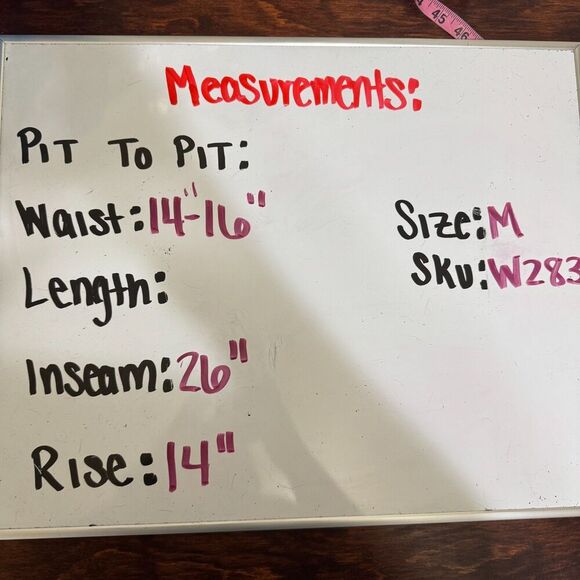 45 46
Measurements:
PIT TO PIT:
Waist: 14"-16"
Size: M
Length:
Sku: W283
Inseam: 26"
Rise: 14"